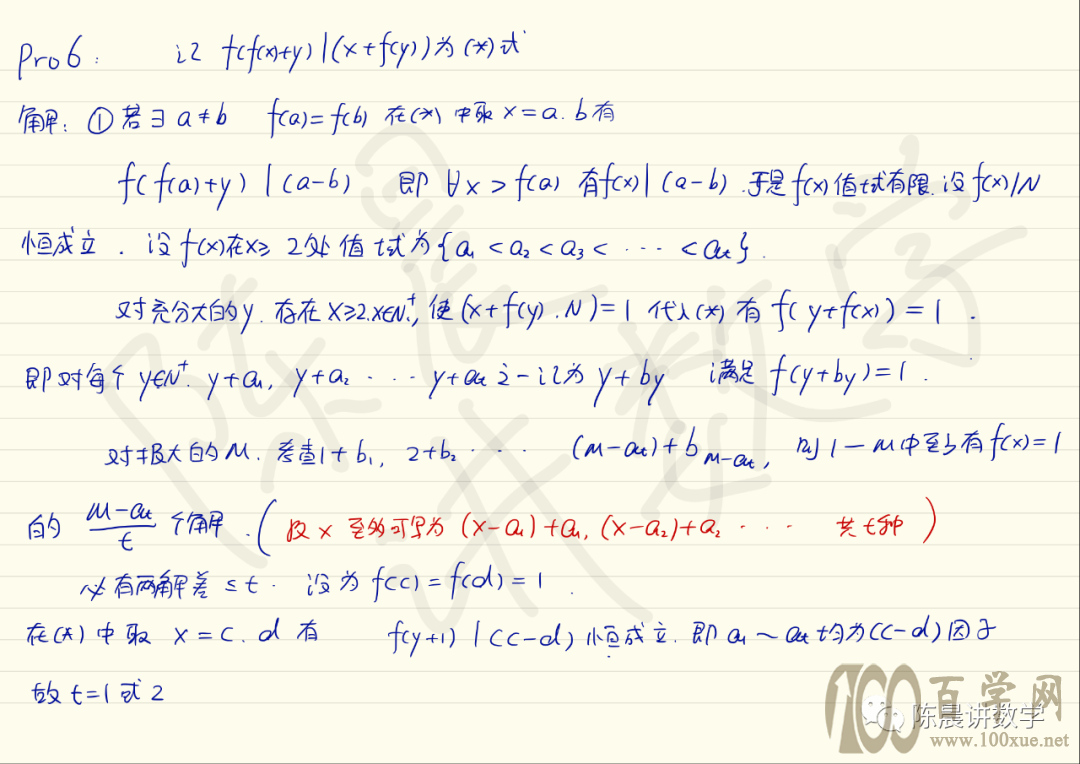 Pro6: 记 f(f(x)+y)|(x+f(y))为(*)式
解: ①若∃a≠b f(a)=f(b) 在(*)中取x=a.b有
f(f(a)+y)|(a-b) 即 ∀x>f(a) 有f(x)|(a-b).于是f(x)值域有限.设f(x)|N
恒成立. 设f(x)在x≥2处值域为{a₁<a₂<a₃<···<aₜ}.
对充分大的y.存在x≥2.x∈N⁺,使(x+f(y).N)=1 代入(*)有f(y+f(x))=1.
即对每个y∈N⁺. y+a₁, y+a₂ ··· y+aₜ 之一记为y+by 满足f(y+by)=1.
对极大的M.考查1+b₁, 2+b₂ ··· (M-aₜ)+b_{M-aₜ}, 则1-M中至少有f(x)=1
的 (M-aₜ)/t 个解.(及x至多可写为(x-a₁)+a₁,(x-a₂)+a₂ ··· 共t种)
必有两解差≤t. 设为f(c)=f(d)=1.
在(*)中取 x=c.d有 f(y+1)|(c-d)恒成立.即a₁~aₜ均为(c-d)因子
故t=1或2
陈晨讲数学
100百学网
陈晨讲数学
www.100xue.net